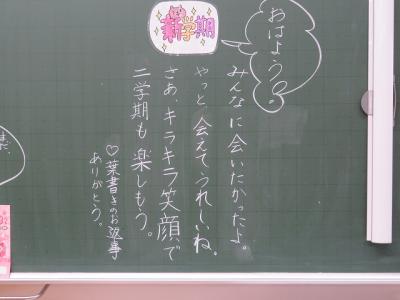 おはよう。
新学期
みんなに会いたかったよ。
やっと、会えてうれしいね。
さあ、キラキラ笑顔で
二学期も楽しもう。
♡葉書きのお返事
ありがとう。